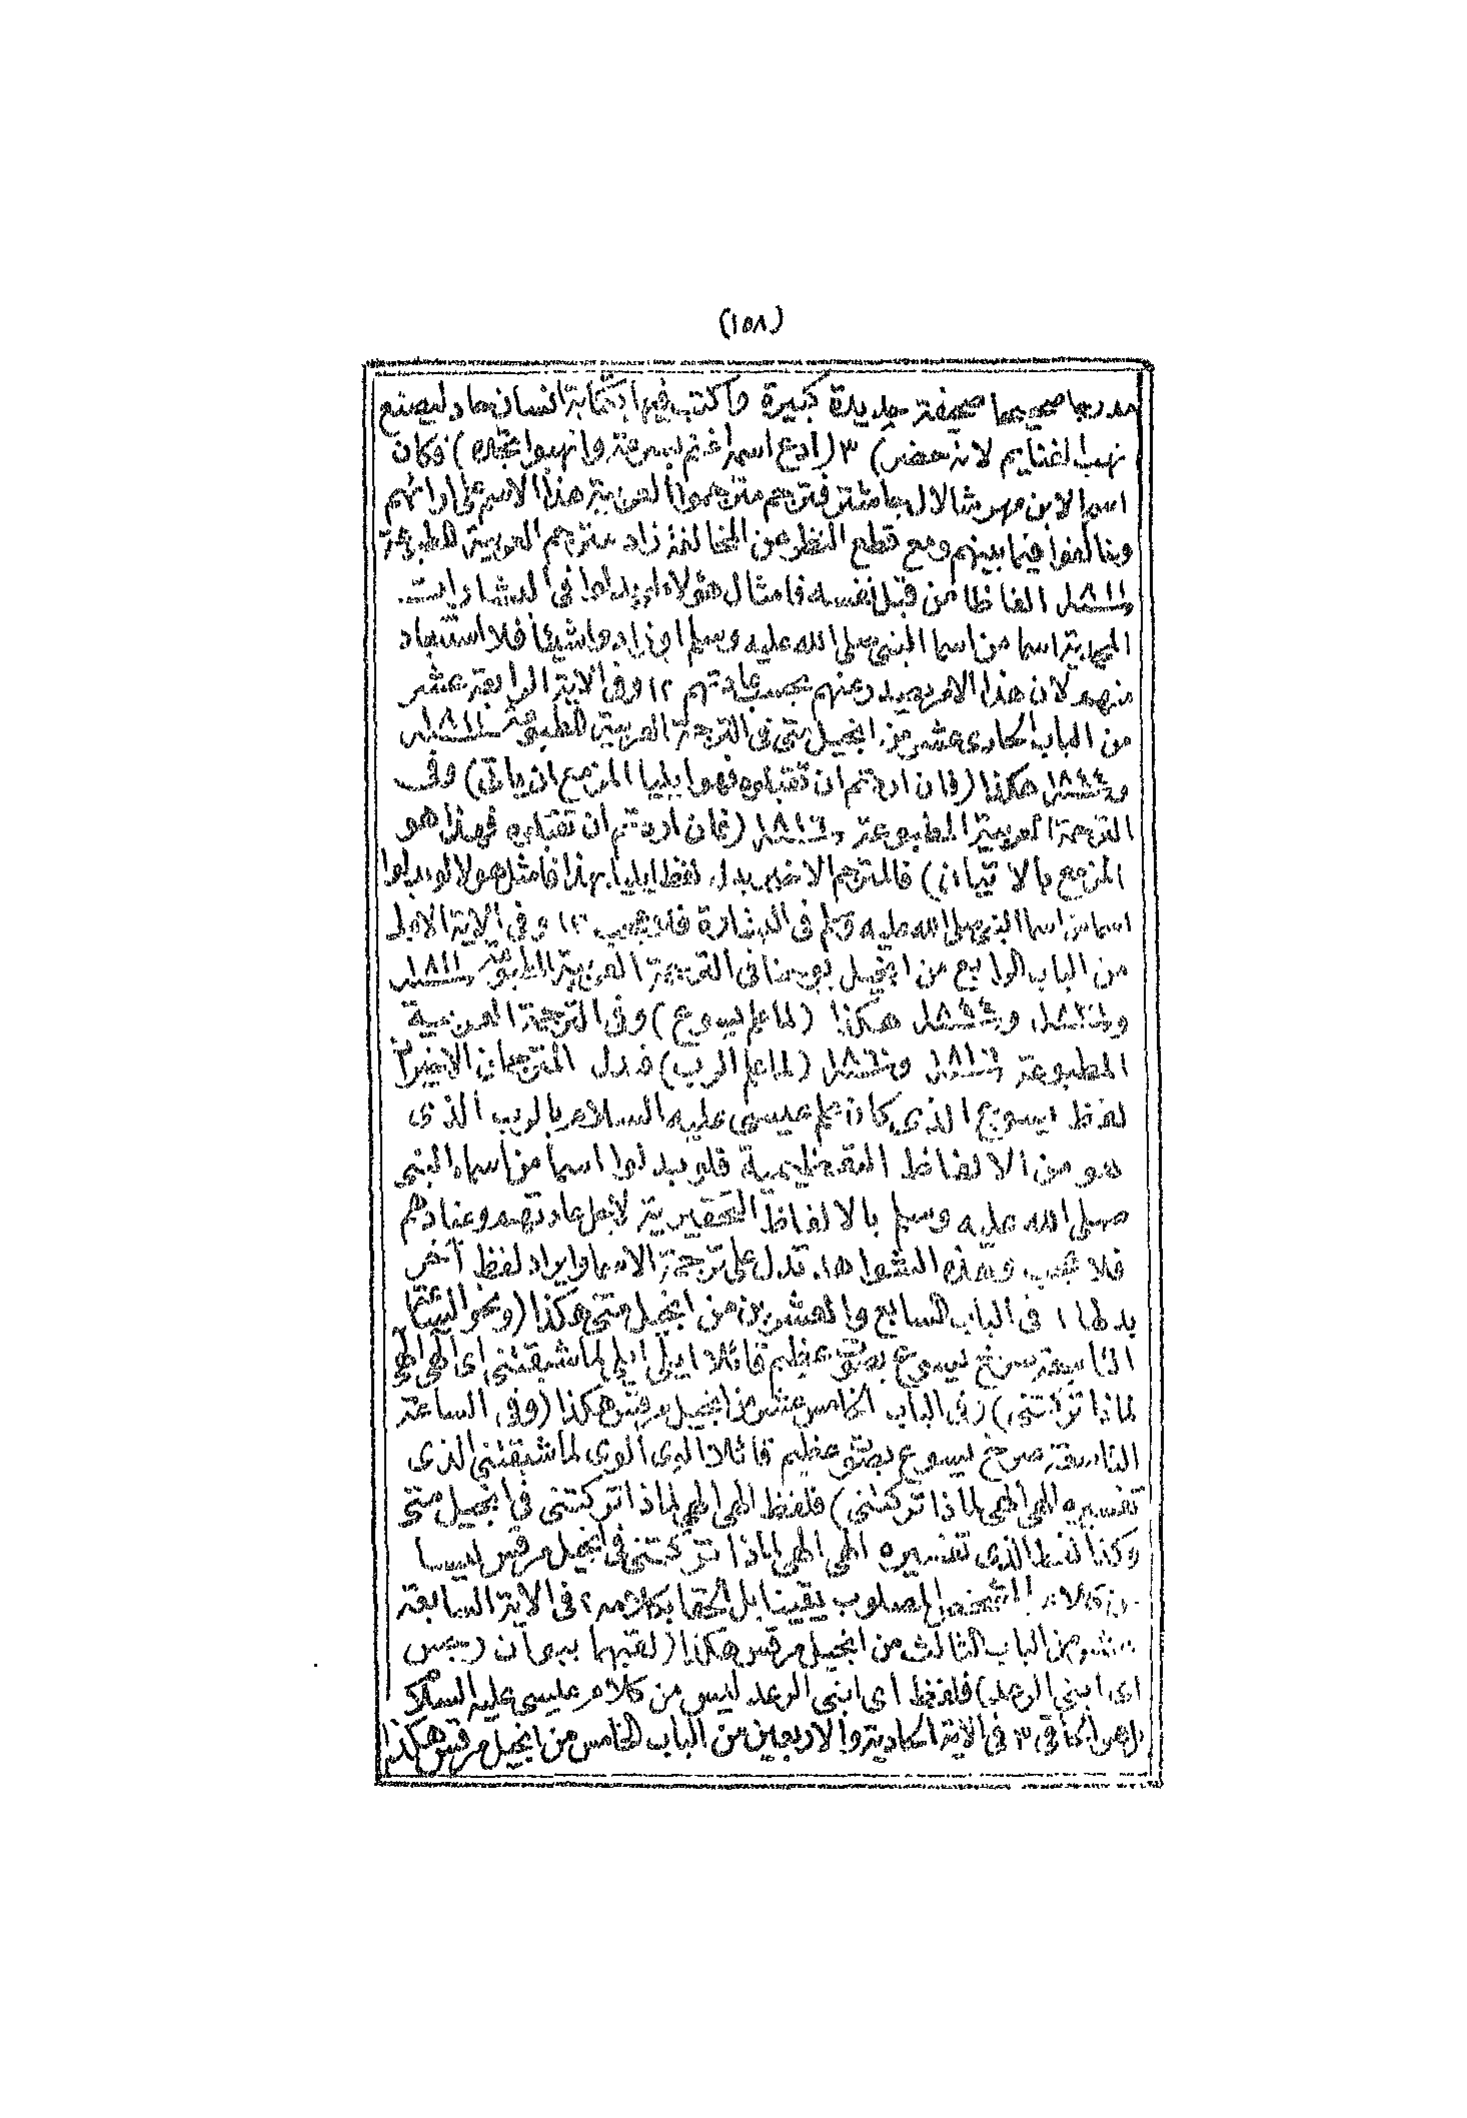 (١٥٨)
مدرجا صحيحا صحيفة جديدة كبيرة واكتب فيها بكتابة انسان حاد ليصنع
نهب الغنايم لانه حضر) ٣ (ادع اسمه اغنم بسرعة وانهبوا عجلا) فكان
اسم الابن مهر شالال حاش بز فترجم مترجموا العربية هذا الاسم على ارائهم
وخالفوا فيما بينهم ومع قطع النظر عن المخالفة زاد مترجم العربية المطبوعة
سنة ١٨١١ الفاظا من قبل نفسه فامثال هؤلاء لو بدلوا فى البشارات
المحمدية اسما من اسما النبى صلى الله عليه وسلم او زادوا شيئا فلا استبعاد
منهم لان هذا الامر يصدر عنهم بحسب عادتهم ١٢ وفى الاية الرابعة عشر
من الباب الحادى عشر من انجيل متى فى الترجمة العربية المطبوعة سنة ١٨١١
وسنة ١٨٤٤ هكذا (فان اردتم ان تقبلوه فهو ايليا المزمع ان ياتى) وفى
الترجمة العربية المطبوعة سنة ١٨١٦ (فان اردتم ان تقبلوه فهذا هو
المزمع بالاتيان) فالمترجم الاخير بدل لفظ ايليا بهذا فامثال هولا لو بدلوا
اسما من اسما النبى صلى الله عليه وسلم فى البشارة فلا عجب ١٣ وفى الاية الاولى
من الباب الرابع من انجيل يوحنا فى الترجمة العربية المطبوعة سنة ١٨١١
وسنة وسنة هكذا (لما علم يسوع) وفى الترجمة العربية
المطبوعة سنة ١٨١٦ وسنة ١٨٦٠ (لما علم الرب) فبدل المترجمان الاخيران
لفظ يسوع الذى كان علم عيسى عليه السلام بالرب الذى
هو من الالفاظ التعظيمية فلو بدلوا اسما من اسماء النبى
صلى الله عليه وسلم بالالفاظ التحقيرية لاجل عادتهم وعنادهم
فلا عجب وهذه الشواهد تدل على ترجمة الاسما وايراد لفظ آخر
بدلها ١ فى الباب السابع والعشرين من انجيل متى هكذا (ونحو الساعة
التاسعة صرخ يسوع بصوت عظيم قائلا ايلى ايلى لما شبقتنى اى الهى الهى
لماذا تركتنى) وفى الباب الخامس عشر من انجيل مرقس هكذا (وفى الساعة
التاسعة صرخ يسوع بصوت عظيم قائلا الوى الوى لما شبقتنى الذى
تفسيره الهى الهى لماذا تركتنى) فلفظ الهى الهى لماذا تركتنى فى انجيل متى
وكذا لفظ الذى تفسيره الهى الهى لماذا تركتنى فى انجيل مرقس ليسا
من كلام الشخص المصلوب يقينا بل الحقا بكلامه ٢ فى الاية السابعة
عشر من الباب الثالث من انجيل مرقس هكذا (لقبهما ببوان رجس
اى ابنى الرعد) فلفظ اى ابنى الرعد ليس من كلام عيسى عليه السلام
بل هو الحاقى ٣ فى الاية الحادية والاربعين من الباب الخامس من انجيل مرقس هكذا